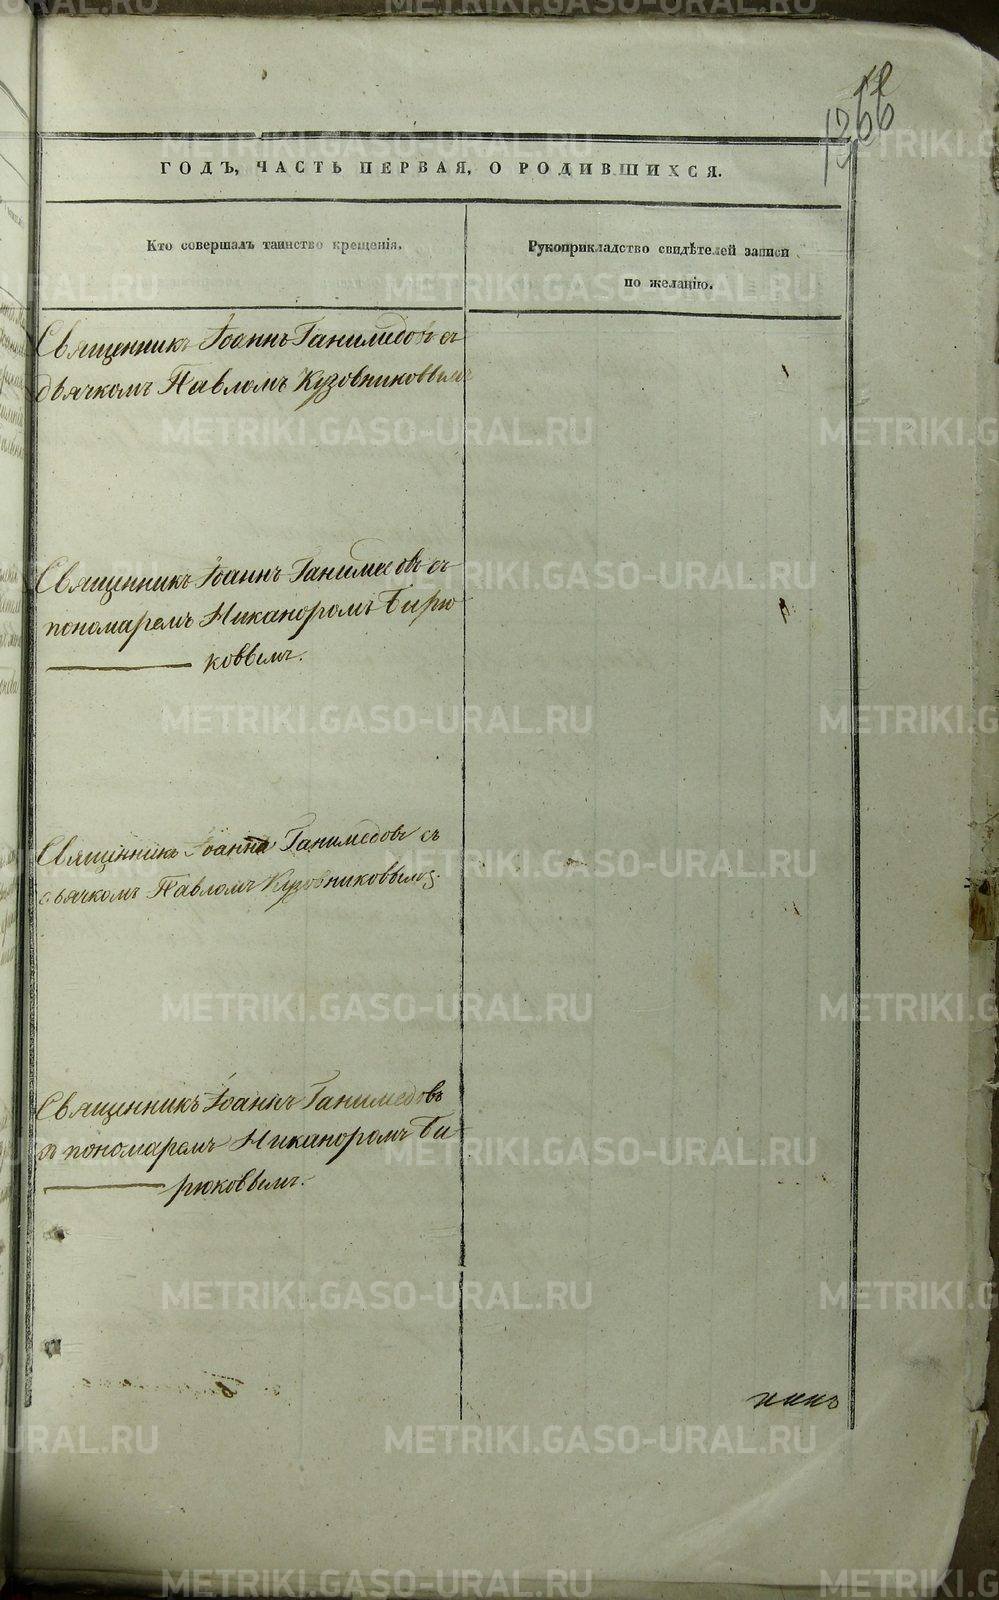 1266
ГОДЪ, ЧАСТЬ ПЕРВАЯ, О РОДИВШИХСЯ.
Кто совершалъ таинство крещенія.
Рукоприкладство свидѣтелей записи
по желанію.
Священникъ Іоаннъ Ганимедовъ съ
дьячкомъ Павломъ Кузовниковымъ
Священникъ Іоаннъ Ганимедовъ съ
пономаремъ Никаноромъ Бирю
ковымъ.
Священникъ Іоаннъ Ганимедовъ съ
дьячкомъ Павломъ Кузовниковымъ.
Священникъ Іоаннъ Ганимедовъ
съ пономаремъ Никаноромъ Би-
рюковымъ.
METRIKI.GASO-URAL.RU